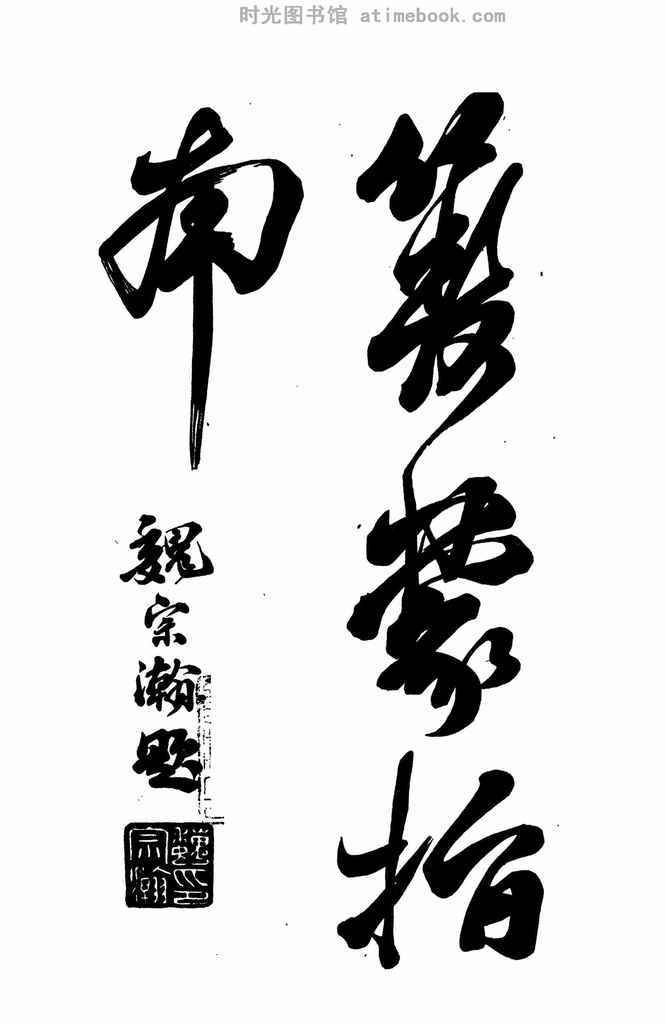 時光图书馆 atimebook.com
蒙指
南
魏宗瀚题
魏印
宗瀚